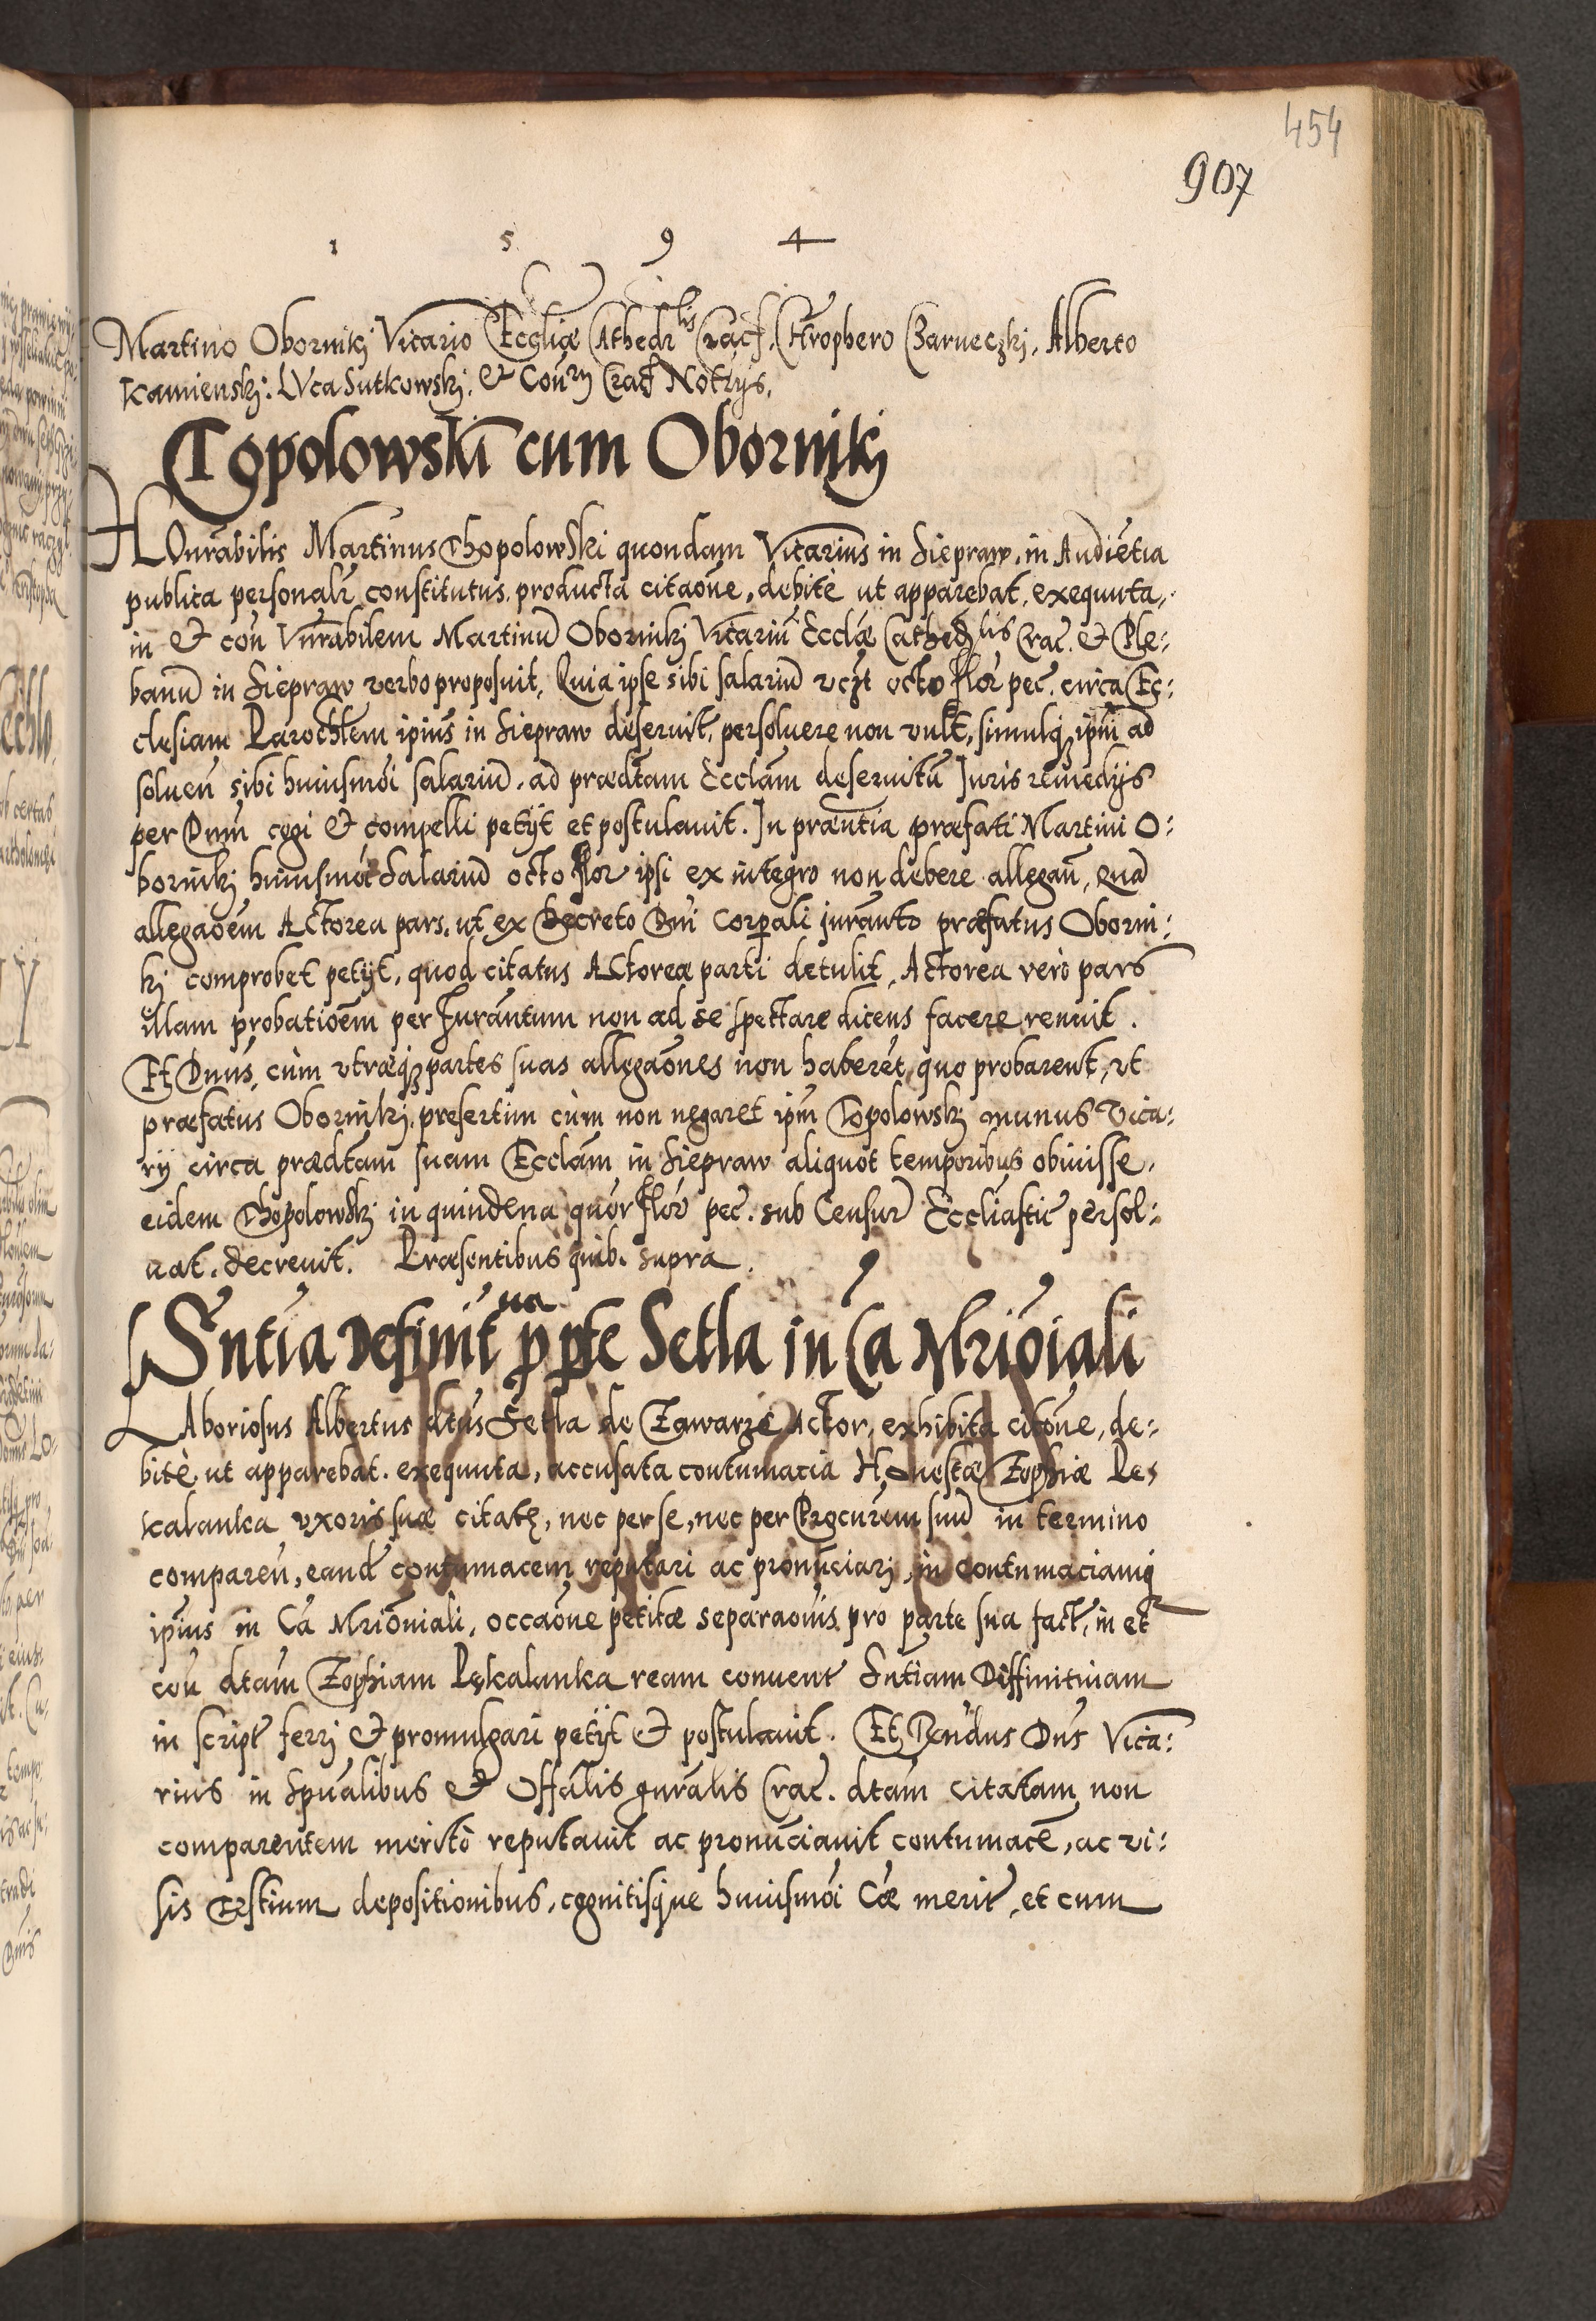 454
907
1 5 9 4
Martino Obornikj Vicario Eccliæ Cathedrlis Crac. Chrophero Czarneczkj, Alberto
Kamienskj: LVca Sutkowskj. et Conry Crac Notrijs.
Topolowski cum Obornikj
HOnrabilis Martinus Thopolowski quondam Vicarius in Siepraw, in Audietia
publica personalr constitutus, producta citaone, debitè ut apparebat, exequuta,
in et con Vnrabilem Martinu Obornikj Vicariu Ecclæ Cathedlis Crac. et Ple:
banu in Siepraw verbo proposuit, Quia ipse sibi salariu vczt octo flor pec. circa Ec:
clesiam Parochlem ipius in Siepraw deseruit, persoluere non vult, simulq ipm ad
soluen sibi huiusmoi salariu, ad prædtam Ecclam deseruitu Juris remedijs
per Dnm cogi et compelli petijt et postulauit. In præntia præfati Martini O:
bornikj huiusmoi Salariu octo flor ipsi ex integro non debere allegan, Qua
allegaoem Actorea pars, ut ex Decreto Dni Corpali juranto præfatus Oborni:
kj comprobet petijt, quod citatus Actoreæ parti detulit, Actorea verò pars
illam probatioem per Jurantum non ad se spectare dicens facere renuit.
Et Dnus, cùm vtræq partes suas allegaones non haberet, quo probarent, vt
præfatus Obornikj, presertim cùm non negaret ipm Topolowskj munus Vica:
rij circa prædtam suam Ecclam in Siepraw aliquot temporibus obiuisse,
eidem Thopolowskj in quindena quor flor pec. sub Censur Eccliastic persol:
uat, decreuit. Præsentibus quib. supra.
Sntia Definitua p pte Setla in Ca Mrioiali
LAboriosus Albertus dtus Setla de Zawarze Actor, exhibita citone, de:
bitè ut apparebat, exequuta, accusata contumacia Honestæ Zophiæ Pes
kalanka vxoris suæ citatę, nec per se, nec per Procurem suu in termino
comparen, eand contumacem reputari ac pronunciarj, in contumaciamq
ipius in Ca Mrioniali, occaone petitæ separaonis pro parte sua fact, in et
con dtam Zophiam Pęskalanka ream conuent Sntiam Diffinitiuam
in script ferrj et promulgari petijt et postulauit. Et Rendus Dns Vica:
rius in Spualibus et Offalis gnralis Crac. dtam citatam non
comparentem meritò reputauit ac pronunciauit contumace, ac vi:
sis testium depositionibus, cognitisque huiusmoi Cæ merit, et cum